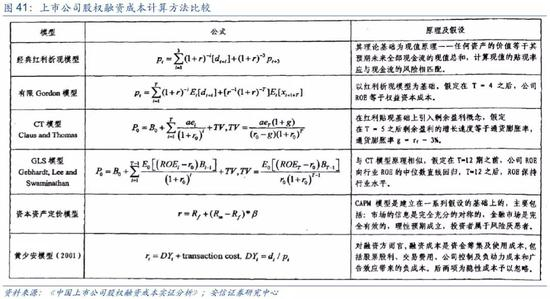 图 41：上市公司股权融资成本计算方法比较
模型
公式
原理及假设
经典红利折现模型
p_t = \sum_{i=1}^{3}(1+r)^{-i}[d_{t+i}]+(1+r)^{-3}p_{t+3}
其理论基础为现值原理——任何资产的价值等于其
预期未来全部现金流的现值总和，计算现值的贴现率
应与现金流的风险相匹配。
有限 Gordon 模型
p_t = \sum_{i=1}^{T}(1+r)^{-i}E_t[d_{t+i}]+[r^{-1}(1+r)^{-T}]E_t[x_{t+T+1}]
以红利折现模型为基础。假定在 T = 4 之后，公司
ROE 等于权益资本成本。
CT 模型
Claus and Thomas
P_0 = B_0+\sum_{t=1}^{T}\frac{ae_t}{(1+r_0)^t}+TV, TV=\frac{ae_T(1+g)}{(r_0-g)(1+r_0)^T}
在红利贴现基础上引入剩余盈利概念，假定在
T = 5 之后剩余盈利的增长速度等于通货膨胀率，
通货膨胀率 g = rf − 3%。
GLS 模型
Gebhardt, Lee and
Swaminathan
P_0 = B_0+\sum_{t=1}^{T-1}\frac{E_0[(ROE_t-r_0)B_{t-1}]}{(1+r_0)^t}+TV, TV=\frac{E_0[(ROE_T-r_0)B_{T-1}]}{r_0(1+r_0)^{T-1}}
与 CT 模型原理相似，假定在 T=12 期之前，公司 ROE
向行业 ROE 的中位数直线回归，T=12 之后，ROE 保持
行业水平。
资本资产定价模型
r = R_f+(R_m-R_f)*β
CAPM 模型是建立在一系列假设的基础上的，主要包
括：市场的信息是完全充分的对称的，金融市场是完
全有效的，理性预期成立，投资者属于风险厌恶者。
黄少安模型（2001）
r_t = DY_t + transaction cost, DY_t = d_t / p_t
对融资方而言，融资成本是资金筹集及使用成本，包
括股票股利、交易费用、公司控制及负动力成本和广
告效应带来的负成本。后两项为隐性成本予以忽略。
资料来源：《中国上市公司股权融资成本实证分析》；安信证券研究中心